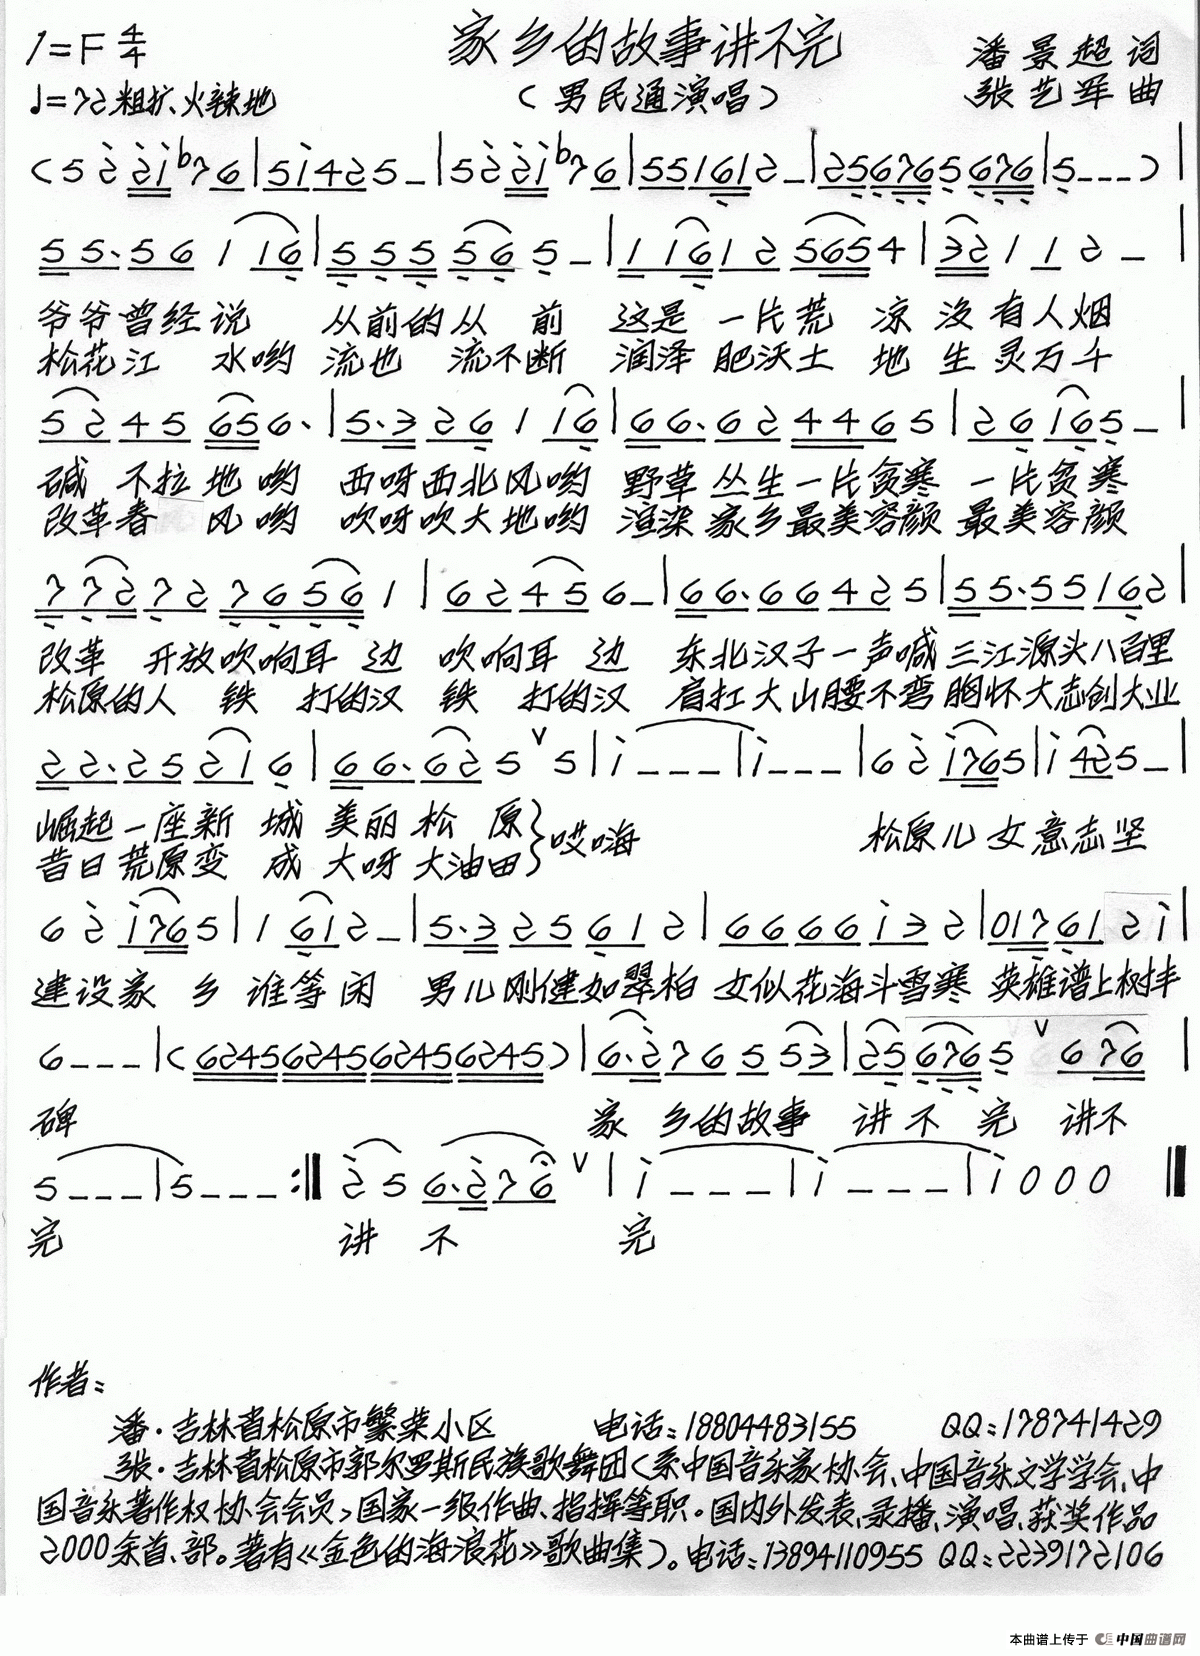 1=F 4/4
家乡的故事讲不完
潘景超 词
♩=72 粗犷、火辣地
(男民通演唱)
张艺军 曲
(5 2 2i b7 6 | 5i 425 _ | 5 2 2i b7 6 | 551612 _ | 256765 676 | 5 _ _ _ ) |
55.56 1 16 | 555 56 5 _ | 1 1612 5654 | 32 1 1 2 _ |
爷爷曾经说 从前的从 前 这是 一片荒 凉 没有人烟
松花江 水哟 流也 流不断 润泽 肥沃土 地 生灵万千
52 45 65 6. | 5.3 26 1 16 | 66.62 4465 | 26 165 _ |
碱 不拉地哟 西呀西北风哟 野草丛生一片贫寒 一片贫寒
改革春 风哟 吹呀吹大地哟 渲染家乡最美容颜 最美容颜
772 72 7656 1 | 62 45 6 _ | 66.66 425 | 55.55 162 |
改革 开放吹响耳 边 吹响耳 边 东北汉子一声喊 三江源头八百里
松原的人 铁 打的汉 铁 打的汉 肩扛大山腰不弯 胸怀大志创大业
22.25 21 6 | 66.62 5 V 5 | i _ _ _ | i _ _ _ | 6 2 i765 | i 425 _ |
崛起一座新 城 美丽松 原 } 哎嗨 松原儿女意志坚
昔日荒原变 成 大呀大油田
6 2 i765 | 1 612 _ | 5.3 25 61 2 | 6666 i3 2 | 017 61 2 i |
建设家 乡 谁等闲 男儿刚健如翠柏 女似花海斗雪寒 英雄谱上树丰
6 _ _ _ | (6245 6245 6245 6245) | 6.276 5 53 | 25 676 5 V 6 76 |
碑 家 乡的故事 讲不 完 讲不
5 _ _ _ | 5 _ _ _ :‖ 2 5 6.276 V | i _ _ _ | i _ _ _ | i 0 0 0 ‖
完 讲 不 完
作者:
潘·吉林省松原市繁荣小区 电话:18804483155 QQ:178741429
张·吉林省松原市郭尔罗斯民族歌舞团(系中国音乐家协会、中国音乐文学学会、中
国音乐著作权协会会员>国家一级作曲、指挥等职。国内外发表、录播、演唱、获奖作品
2000余首、部。著有《金色的海浪花》歌曲集)。电话:13894110955 QQ:2239172106
本曲谱上传于 中国曲谱网